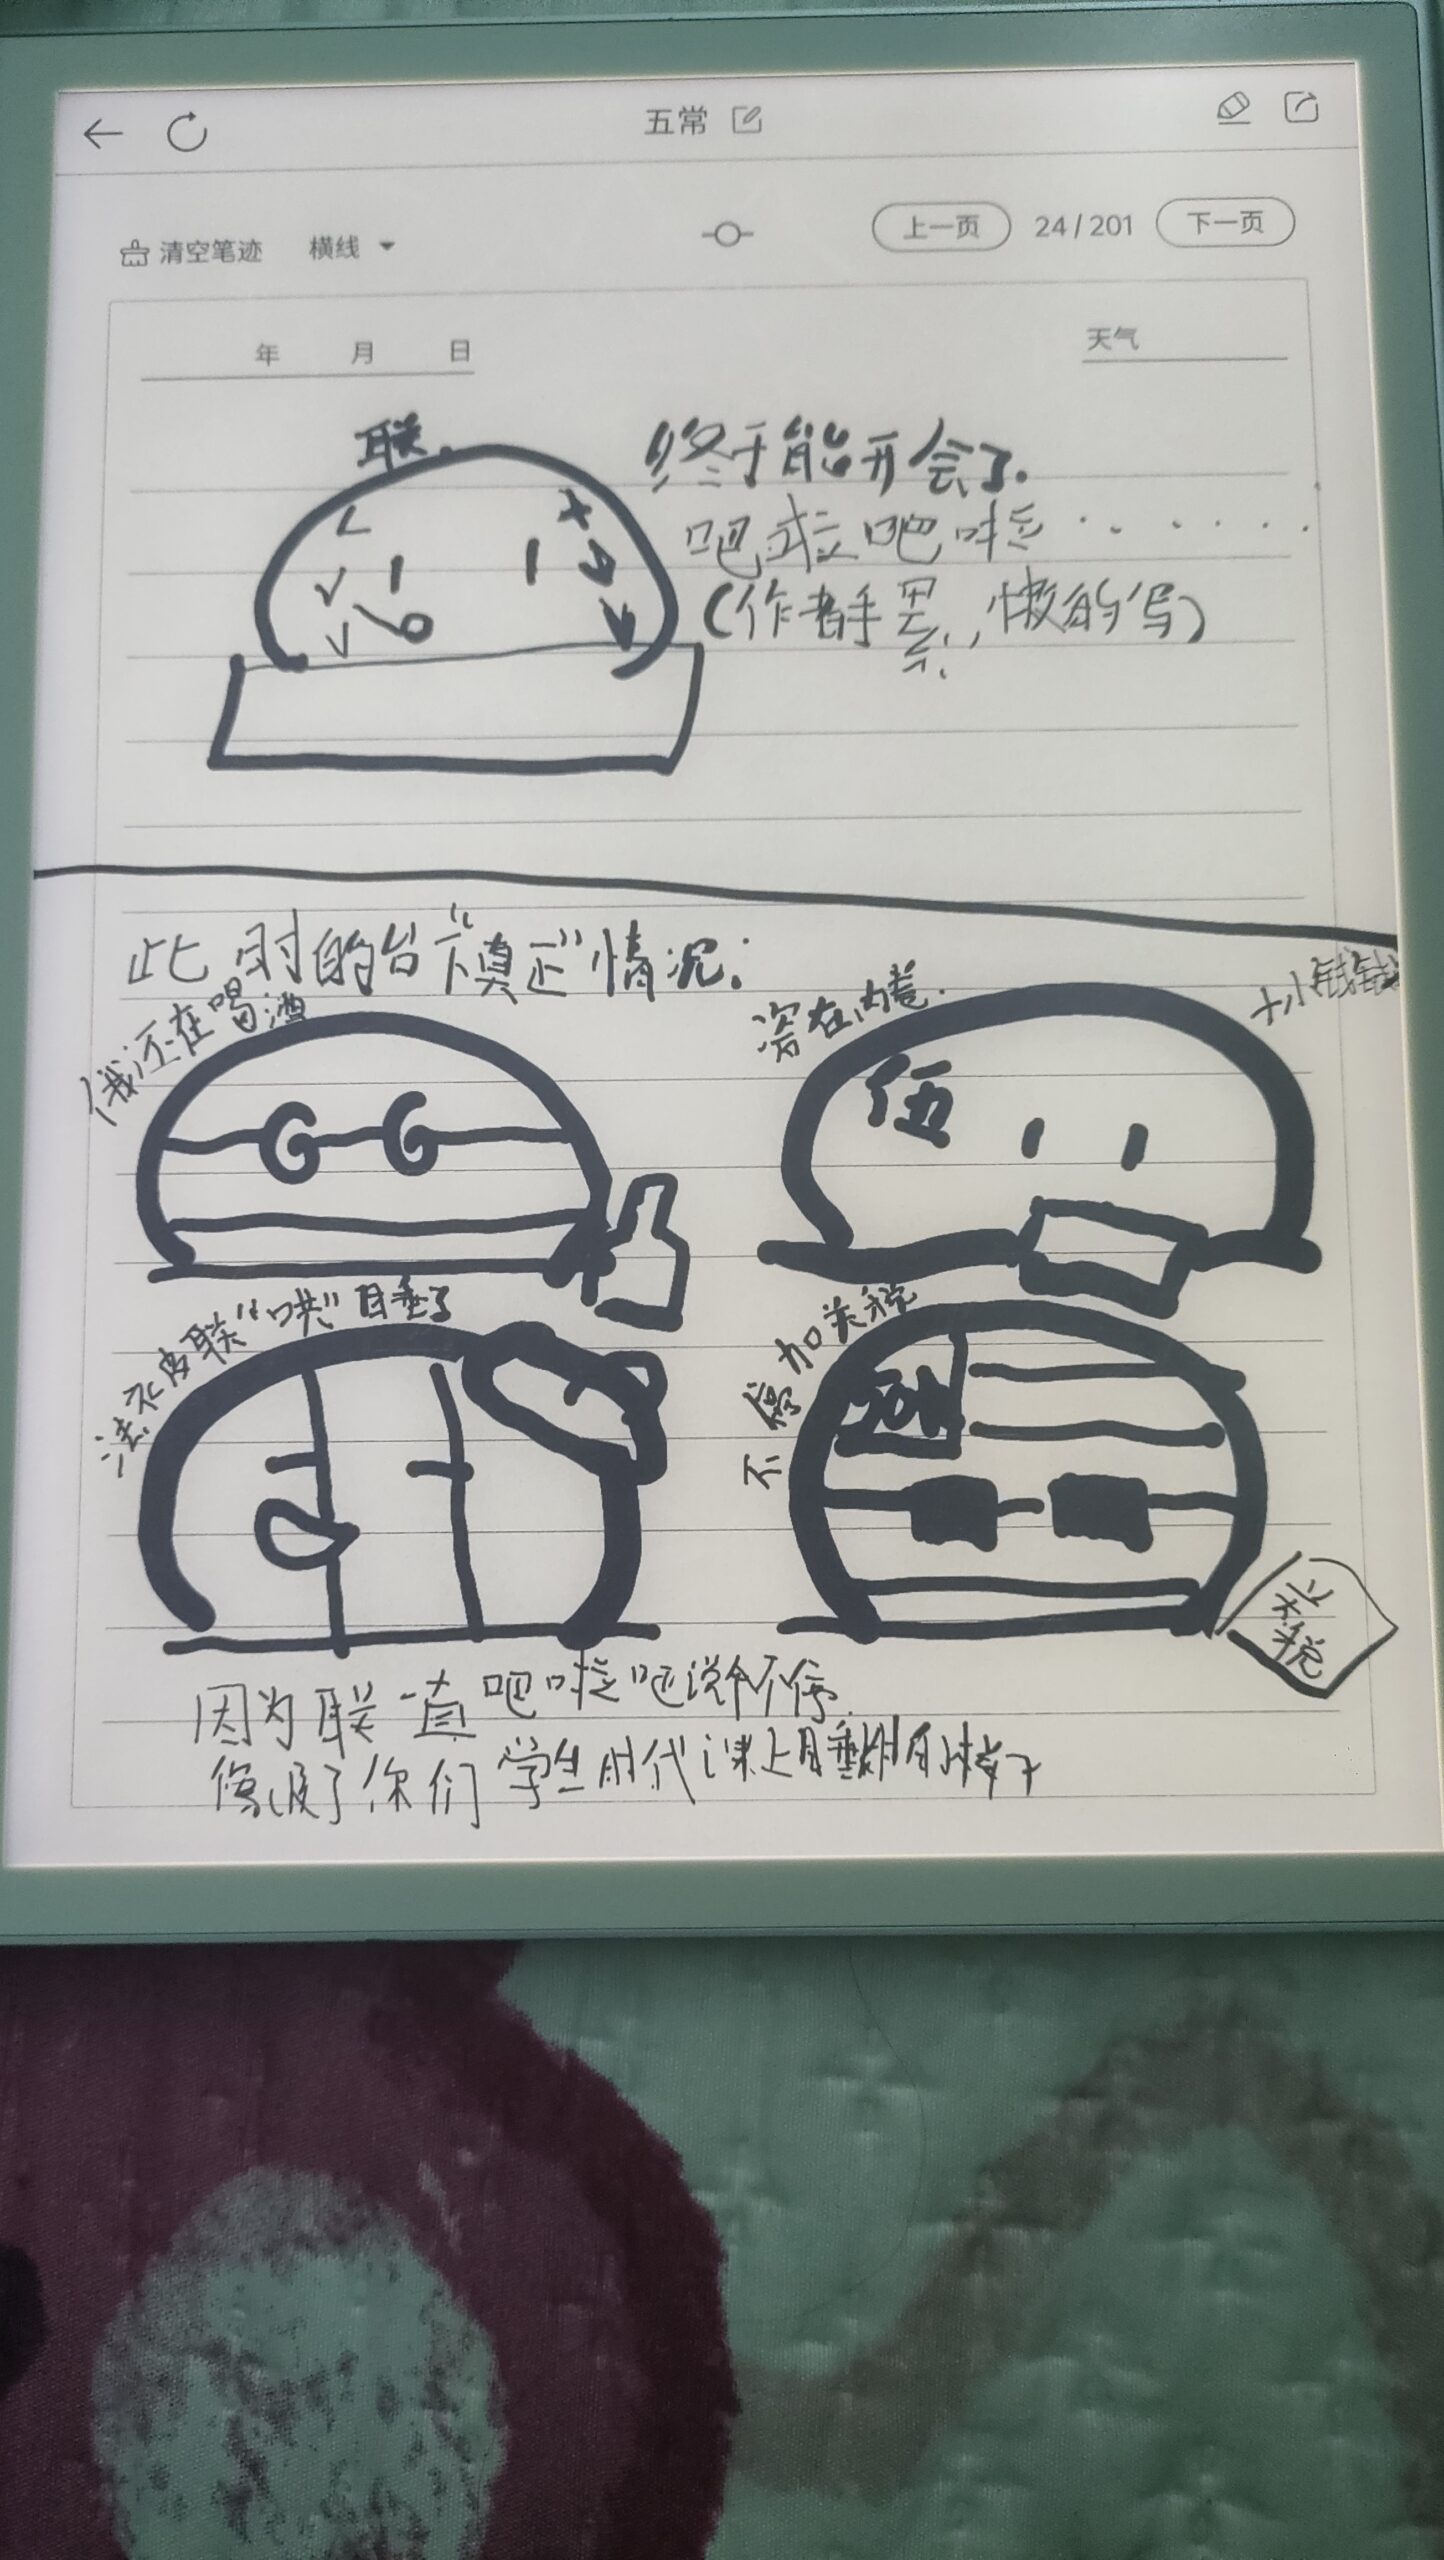 五常
清空笔迹 横线 上一页 24/201 下一页
年 月 日 天气
联
终于能开会了.
吧啦吧啦......
(作者手累,懒的写)
此时的台下“真正”情况:
俄还在喝酒
瓷在内卷.
+小钱钱
伍
法不皮联“哄”睡了
不停加关税
关税
因为联一直吧啦吧说个不停.
像极了你们学生时代课上睡觉的样子